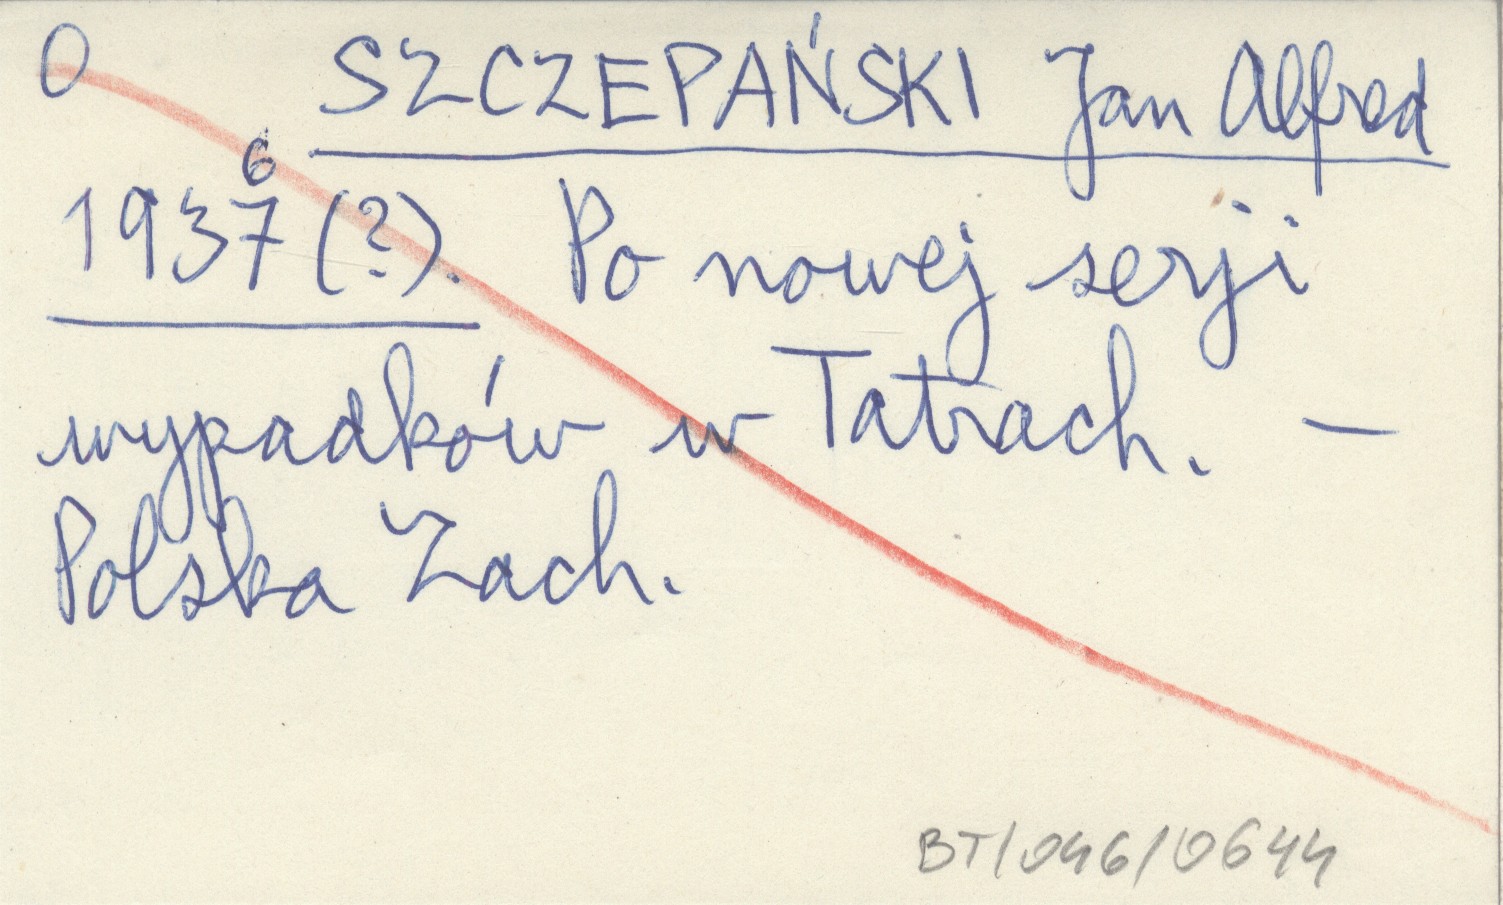 O SZCZEPAŃSKI Jan Alfred
6
1937 (?). Po nowej serji
wypadków w Tatrach. —
Polska Zach.
BT/046/0644